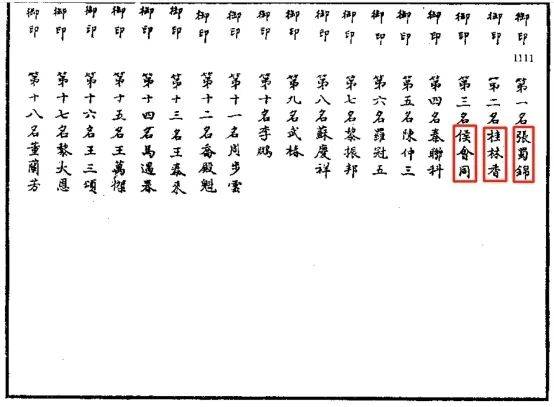 御印
1111
第一名張蜀錦
御印
第二名桂林香
御印
第三名侯會同
御印
第四名秦聯科
御印
第五名陳仲三
御印
第六名羅冠五
御印
第七名黎振邦
御印
第八名蘇慶祥
御印
第九名武椿
御印
第十名李鵬
御印
第十一名周步雲
御印
第十二名喬殿魁
御印
第十三名王春來
御印
第十四名馬遇春
御印
第十五名王萬傑
御印
第十六名王三頌
御印
第十七名黎大恩
御印
第十八名董蘭芳